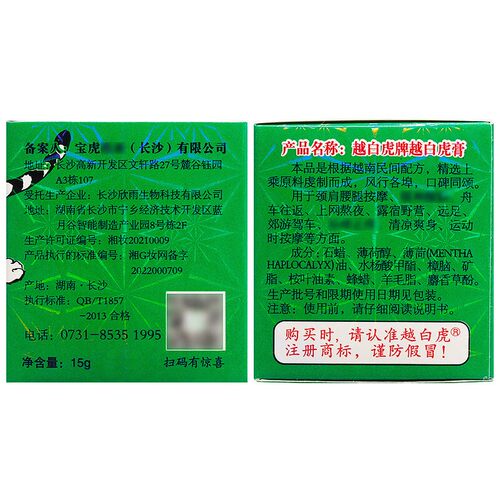 备案人：宝虎（长沙）有限公司
地址：长沙高新开发区文轩路27号麓谷钰园
A3栋107
受托生产企业：长沙欣雨生物科技有限公司
地址：湖南省长沙市宁乡经济技术开发区蓝
月谷智能制造产业园8号栋2F
生产许可证编号：湘妆20210009
产品执行的标准编号：湘G妆网备字
2022000709
产地：湖南·长沙
执行标准：QB/T1857
-2013 合格
电话：0731-8535 1995
净含量：15g
扫码有惊喜
产品名称：越白虎牌越白虎膏
本品是根据越南民间配方，精选上
乘原料虔制而成，风行各埠，口碑同颂。
用于颈肩腰腿按摩、舟
车往返、上网熬夜、露宿野营、远足、
郊游驾车、清凉爽身、运动
时按摩等方面。
成分：石蜡、薄荷醇、薄荷(MENTHA
HAPLOCALYX)油、水杨酸甲酯、樟脑、矿
脂、桉叶油素、蜂蜡、羊毛脂、麝香草酚。
生产批号和限期使用日期见包装。
注意：使用前，请仔细阅读说明书。
购买时，请认准越白虎®
注册商标，谨防假冒！